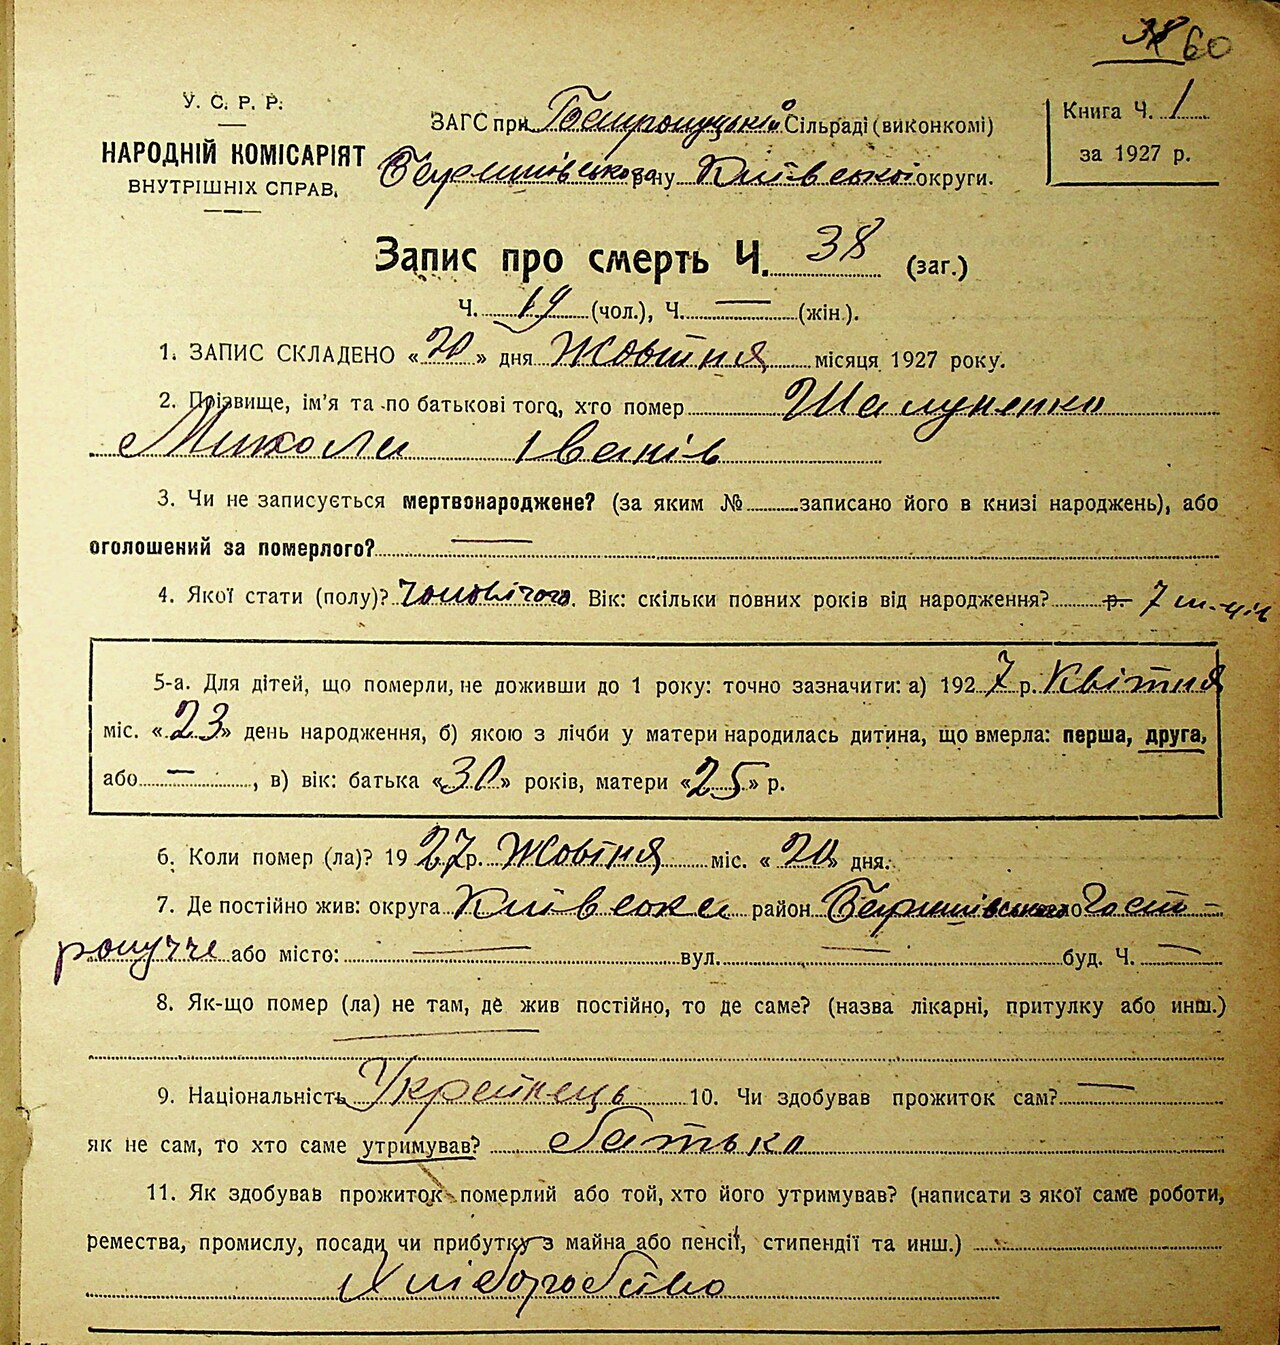 38 60
У. С. Р. Р.
НАРОДНІЙ КОМІСАРІЯТ
ВНУТРІШНІХ СПРАВ.
ЗАГС при Гостролуцькій Сільраді (виконкомі)
Баришівського р-ну Київської округи.
Книга Ч. 1
за 1927 р.
Запис про смерть Ч. 38 (заг.)
Ч. 19 (чол.), Ч. — (жін.).
1. ЗАПИС СКЛАДЕНО «20» дня Жовтня місяця 1927 року.
2. Прізвище, ім'я та по батькові того, хто помер Шалупенко
Микола Іванів
3. Чи не записується мертвонароджене? (за яким № записано його в книзі народжень), або
оголошений за померлого? —
4. Якої стати (полу)? Чоловічого. Вік: скільки повних років від народження? р. 7 м-ців
5-а. Для дітей, що померли, не доживши до 1 року: точно зазначити: а) 1927 р. Квітня
міс. «23» день народження, б) якою з лічби у матери народилась дитина, що вмерла: перша, друга,
або — , в) вік: батька «30» років, матери «25» р.
6. Коли помер (ла)? 1927 р. Жовтня міс. «20» дня.
7. Де постійно жив: округа Київська район Баришівського Гост-
ролуччє або місто: — вул. — буд. Ч. —
8. Як-що помер (ла) не там, де жив постійно, то де саме? (назва лікарні, притулку або инш.)
—
9. Національність Українець 10. Чи здобував прожиток сам? —
як не сам, то хто саме утримував? батько
11. Як здобував прожиток померлий або той, хто його утримував? (написати з якої саме роботи,
ремества, промислу, посади чи прибутку з майна або пенсії, стипендії та инш.)
Хліборобство